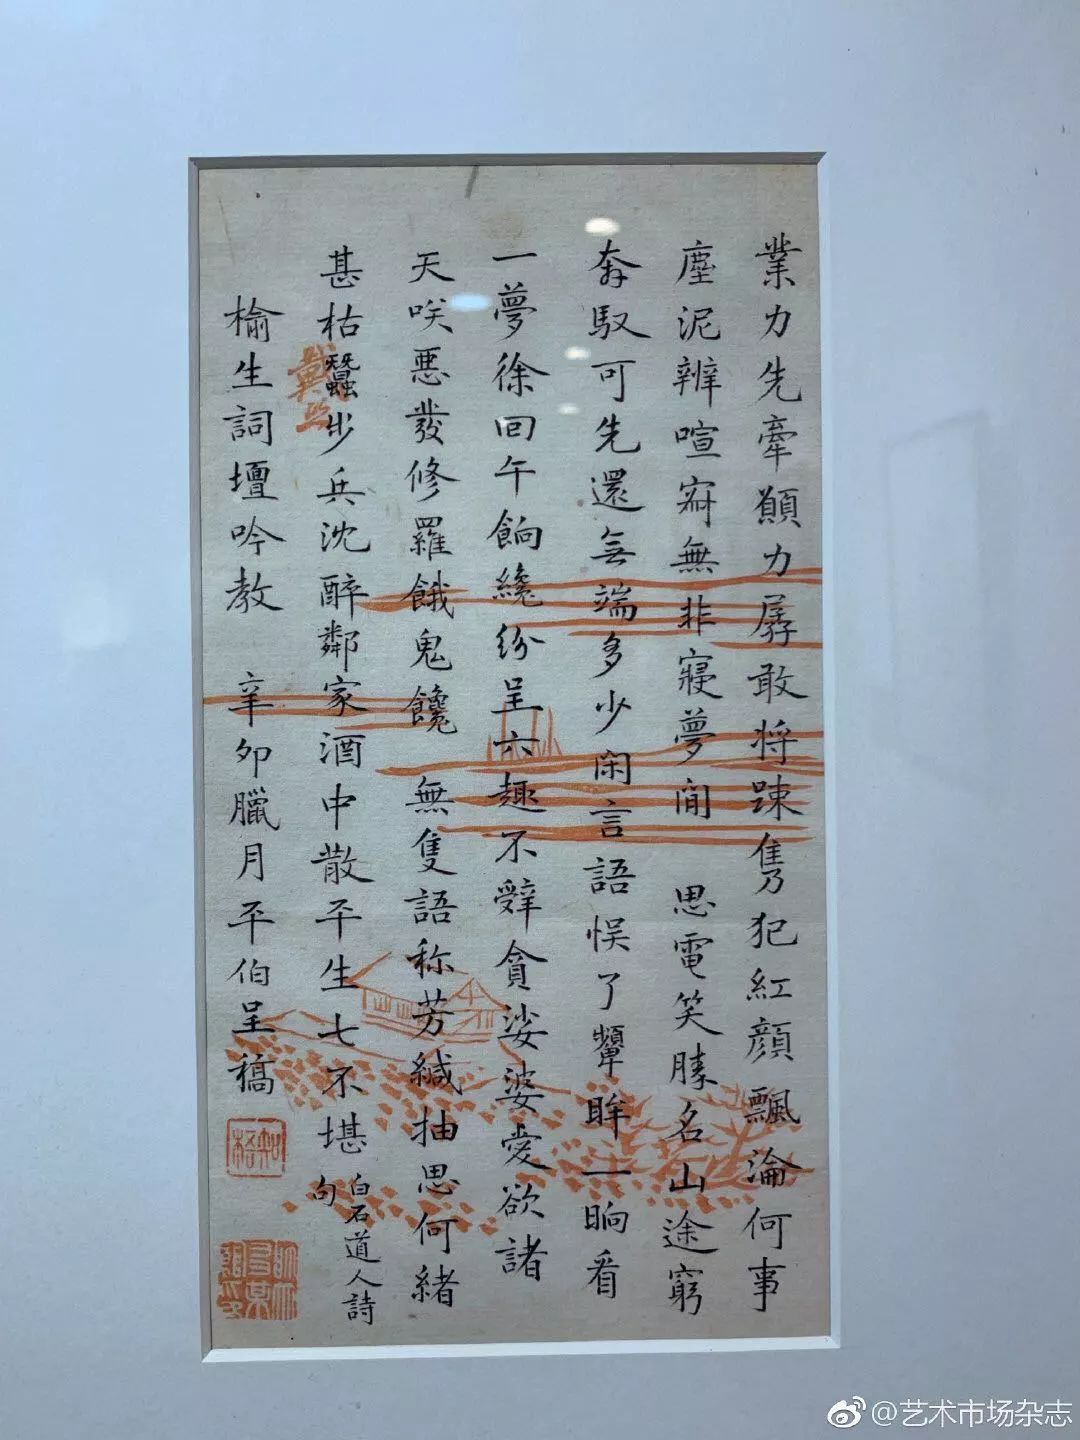 業力先牽願力孱敢將踈雋犯紅顏飄淪何事
塵泥辨喧寂無非寢夢間　思電笑膝名山途窮
奔馭可先還無端多少閑言語悮了顰眸一晌看
一夢徐回午餉纔紛呈六趣不辭貪娑婆愛欲諸
天咲惡發修羅餓鬼饞　無隻語称芳緘抽思何緒
甚枯蠶步兵沈醉鄰家酒中散平生七不堪
白石道人詩
句
榆生詞壇吟教　辛卯臘月平伯呈稿
知
@艺术市场杂志